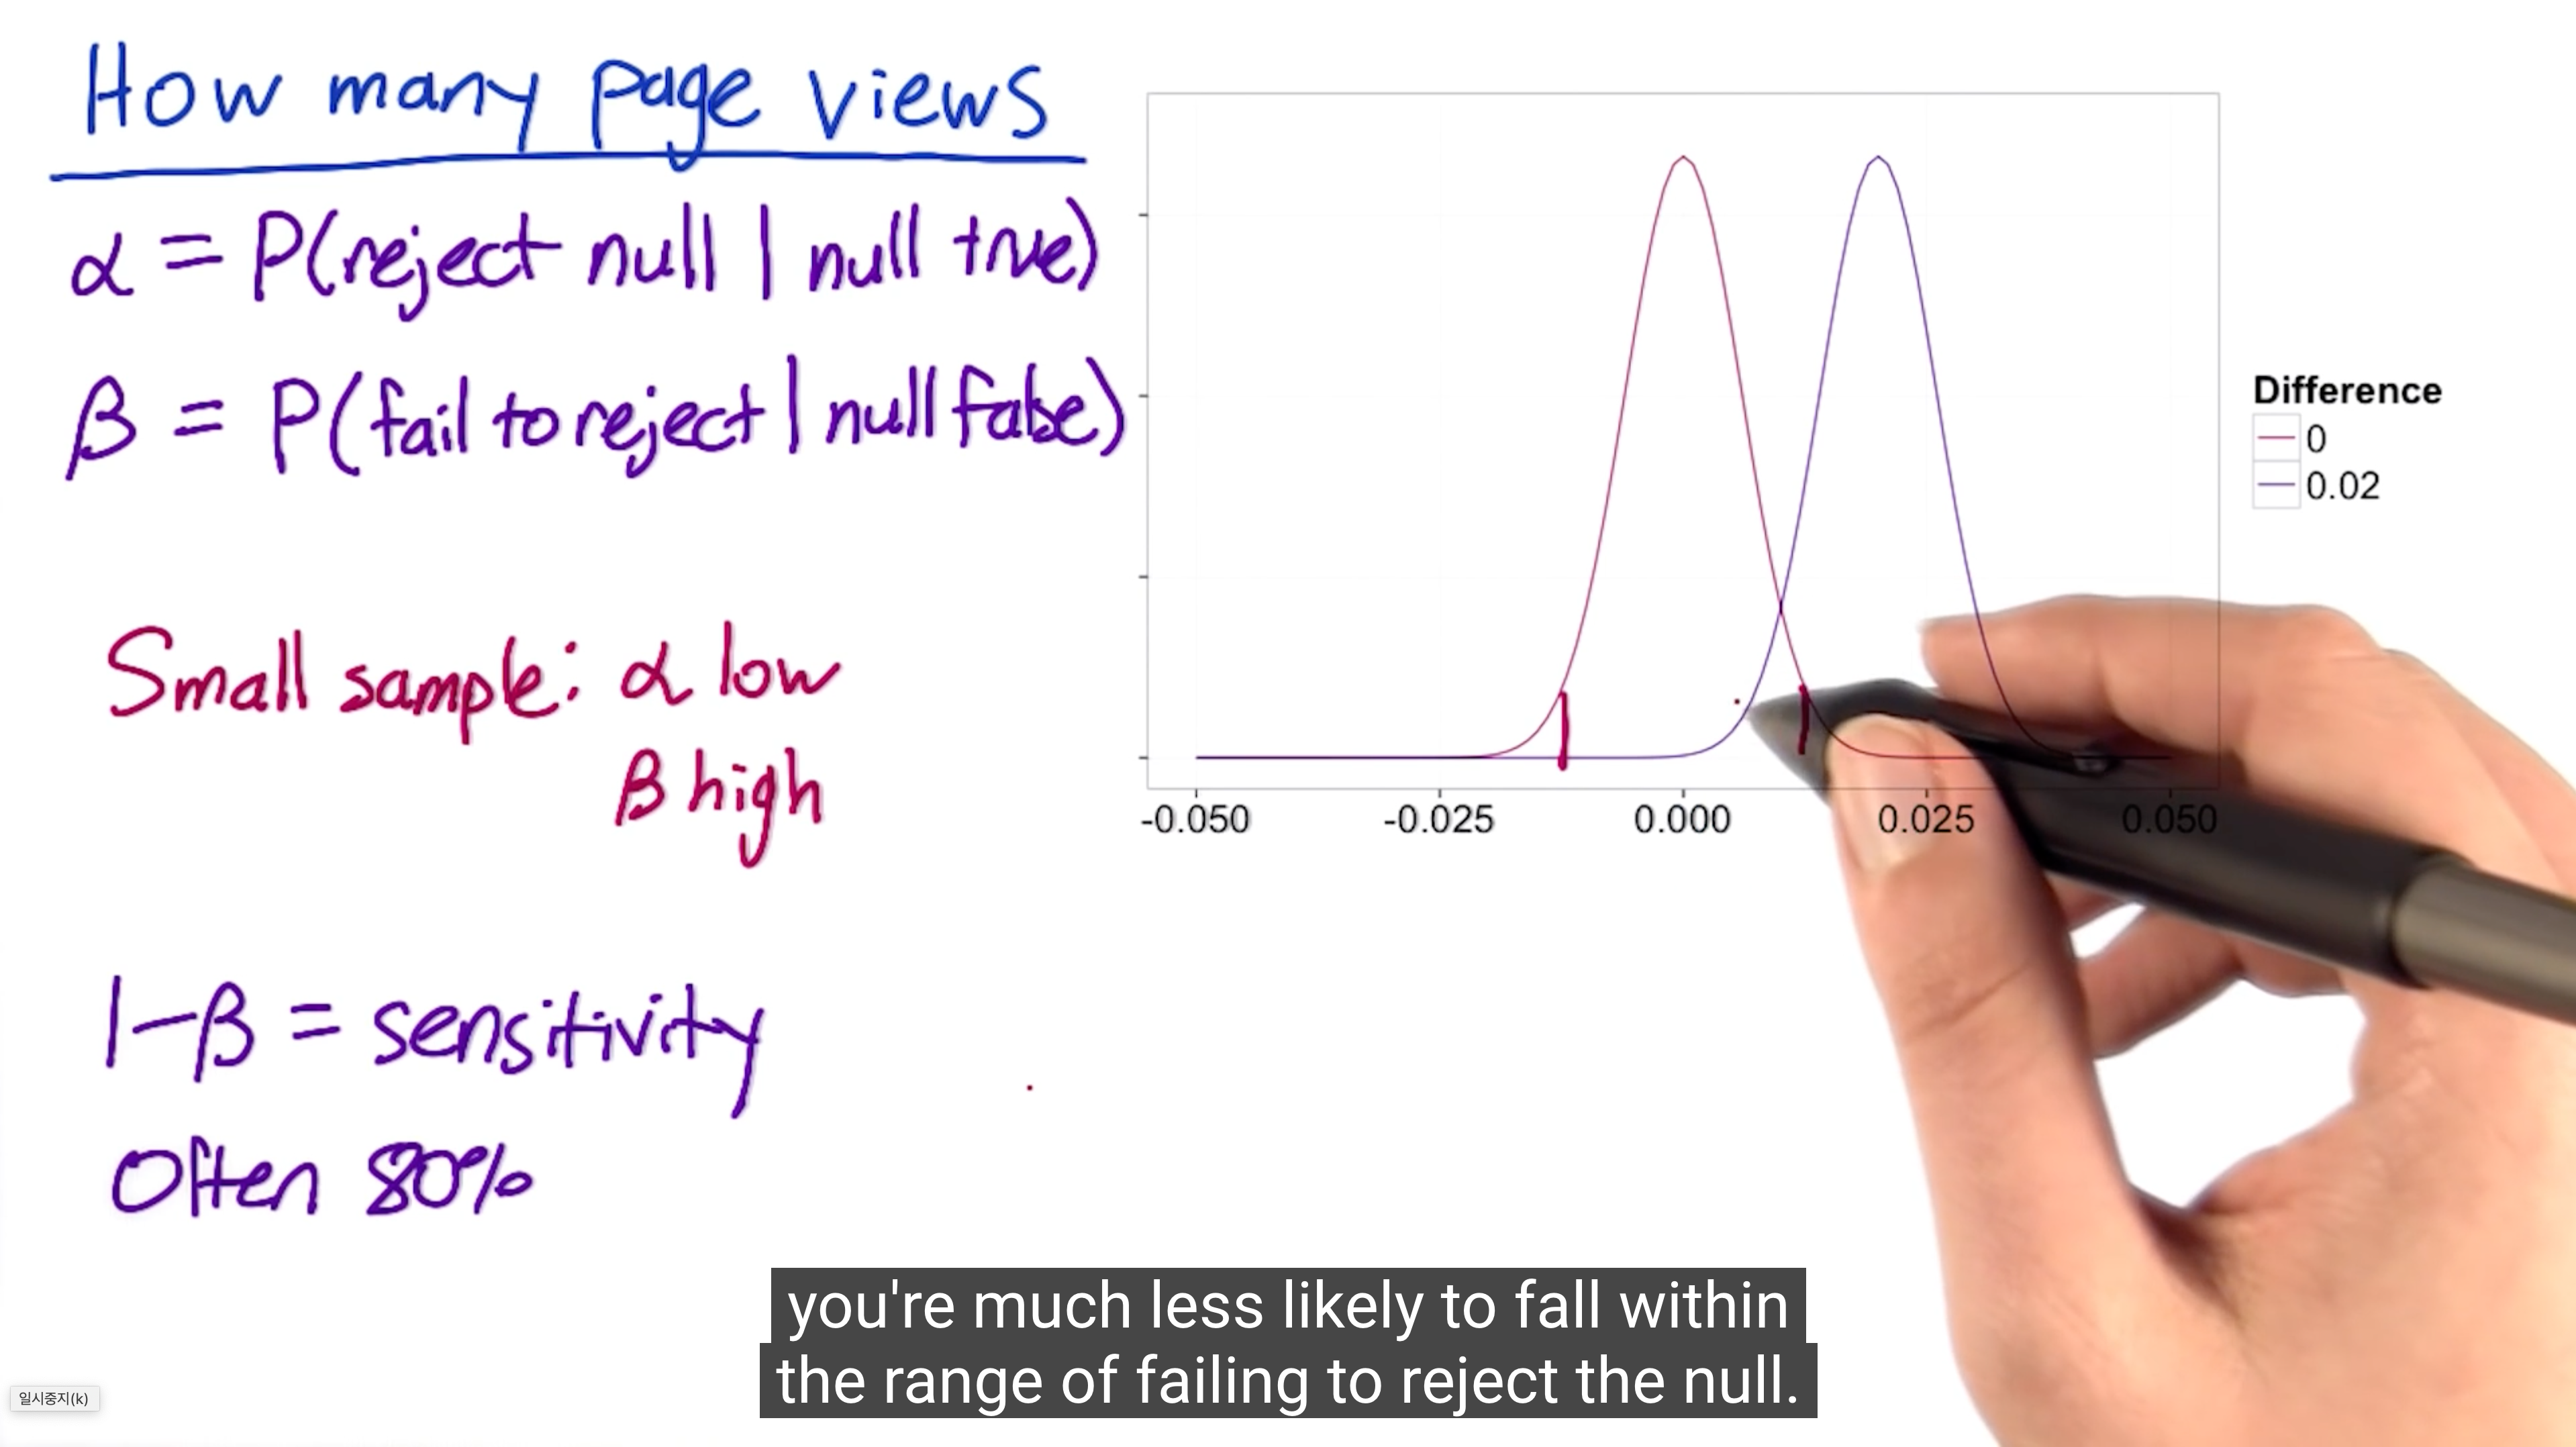 How many page views
α = P(reject null | null true)
β = P(fail to reject | null false)
Small sample: α low
β high
1-β = sensitivity
Often 80%
Difference
0
0.02
-0.050
-0.025
0.000
0.025
0.050
you're much less likely to fall within
the range of failing to reject the null.
일시중지(k)